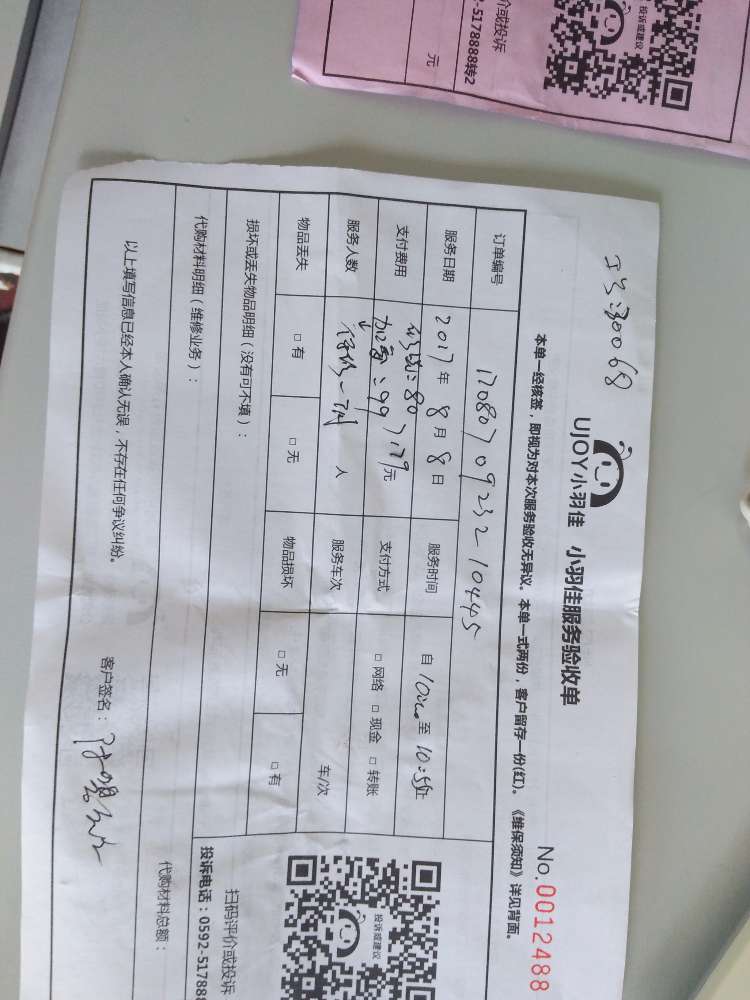 工号:30068
UJOY小羽佳 小羽佳服务验收单
No.0012488
本单一经核签，即视为对本次服务验收无异议。本单一式两份，客户留存一份(红)。《维保须知》详见背面。
订单编号 170807092321044S
服务日期 2017年8月8日 服务时间 自10:00至10:50止
支付费用 :80
加氟:99 }179元 支付方式 □网络 □现金 □转账
服务人数 人 服务车次 车/次
物品丢失 □有 □无 物品损坏 □无 □有
损坏或丢失物品明细（没有可不填）：
代购材料明细（维修业务）：
代购材料总额：
以上填写信息已经本人确认无误，不存在任何争议纠纷。
客户签名：
投诉或建议
扫码评价或投诉
投诉电话：0592-517888
投诉或建议
价或投诉
-5178888转2
元